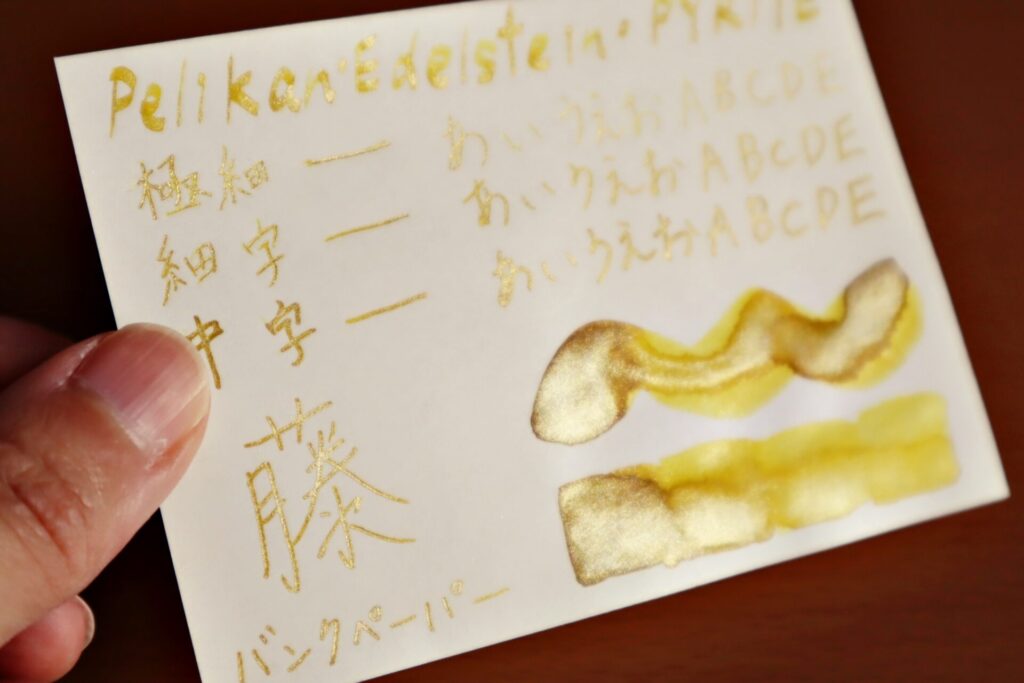 Pelikan・Edelstein・PYRITE
極細 — あいうえおABCDE
細字 — あいうえおABCDE
中字 — あいうえおABCDE
藤
バンクペーパー